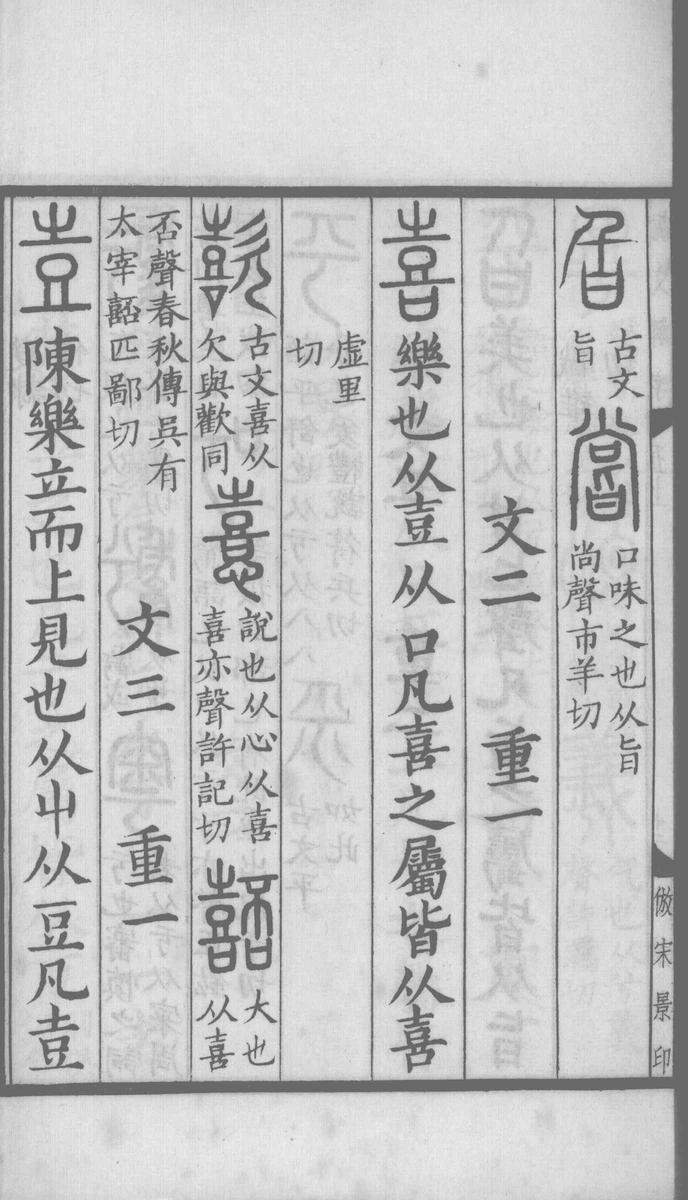 古文
旨
嘗
口味之也从旨
尚聲市羊切
文二 重一
喜
樂也从壴从口凡喜之屬皆从喜
虛里
切
古文喜从
欠與歡同
憙
說也从心从喜
喜亦聲許記切
嚭
大也
从喜
否聲春秋傳吳有
太宰嚭匹鄙切
文三 重一
壴
陳樂立而上見也从屮从豆凡壴
倣宋景印